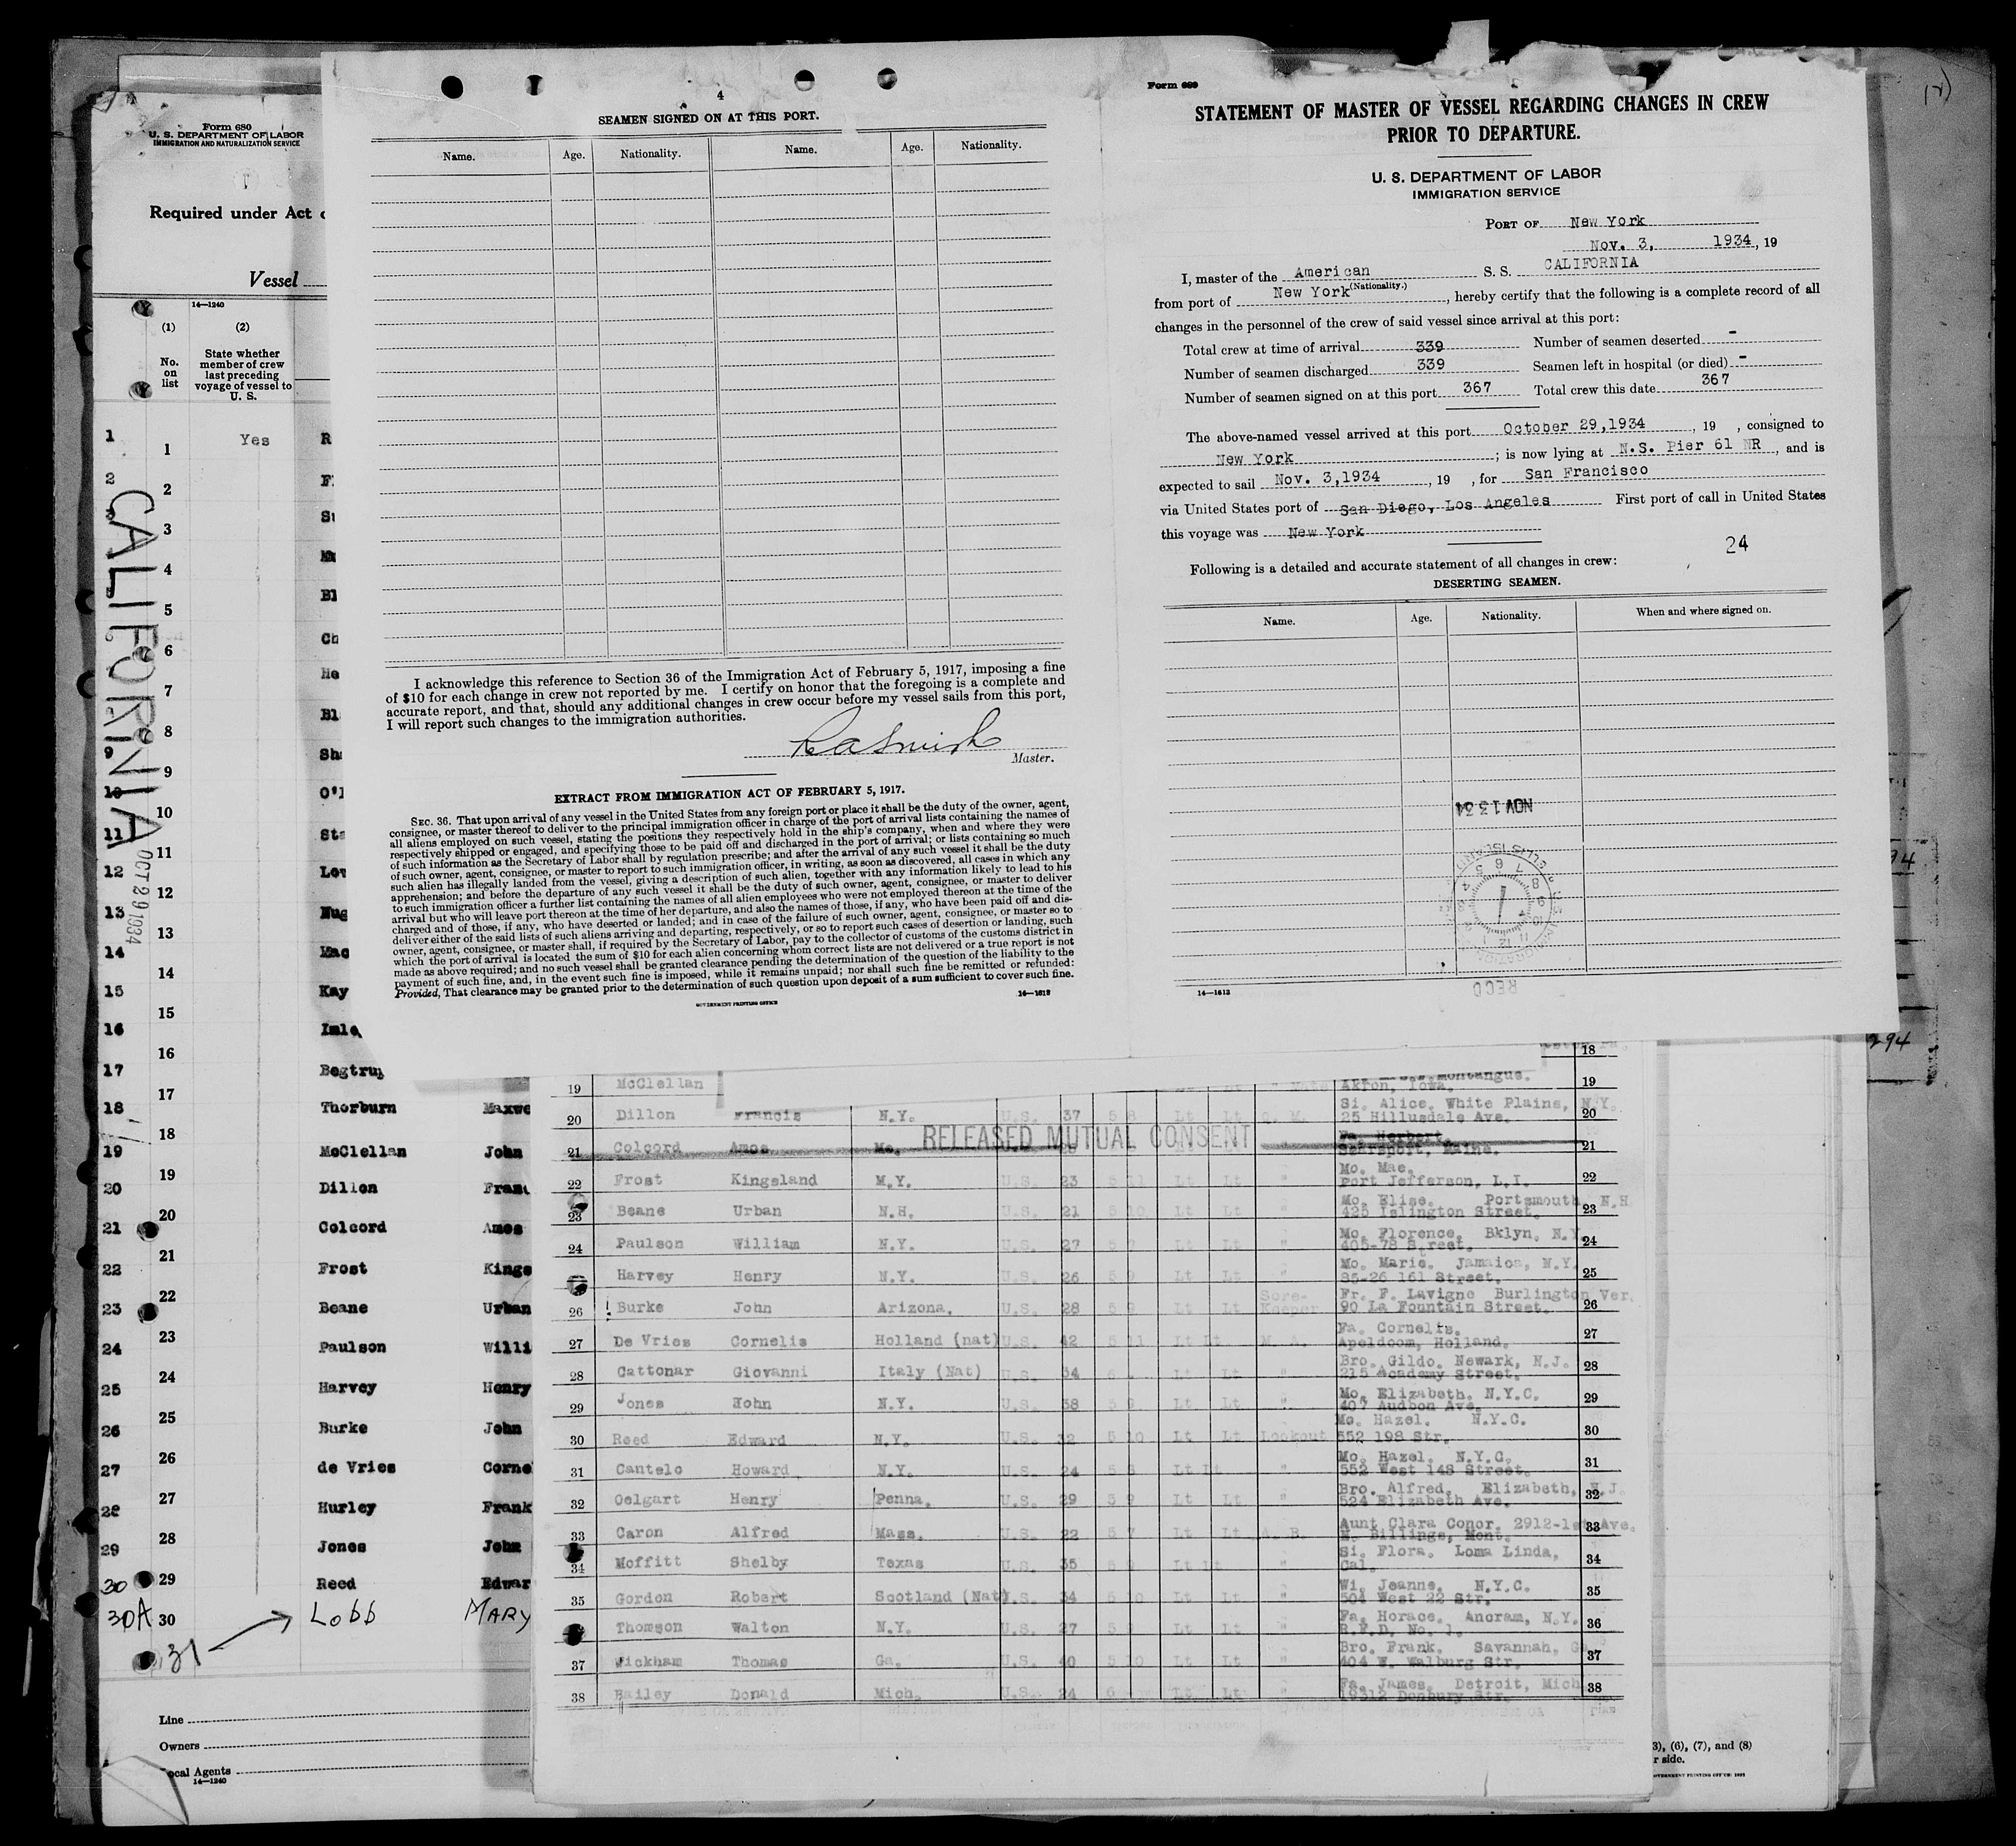 4
SEAMEN SIGNED ON AT THIS PORT.
Name. Age. Nationality. Name. Age. Nationality.
I acknowledge this reference to Section 36 of the Immigration Act of February 5, 1917, imposing a fine
of $10 for each change in crew not reported by me. I certify on honor that the foregoing is a complete and
accurate report, and that, should any additional changes in crew occur before my vessel sails from this port,
I will report such changes to the immigration authorities.
Master.
EXTRACT FROM IMMIGRATION ACT OF FEBRUARY 5, 1917.
SEC. 36. That upon arrival of any vessel in the United States from any foreign port or place it shall be the duty of the owner, agent,
consignee, or master thereof to deliver to the principal immigration officer in charge of the port of arrival lists containing the names of
all aliens employed on such vessel, stating the positions they respectively hold in the ship's company, when and where they were
respectively shipped or engaged, and specifying those to be paid off and discharged in the port of arrival; or lists containing so much
of such information as the Secretary of Labor shall by regulation prescribe; and after the arrival of any such vessel it shall be the duty
of such owner, agent, consignee, or master to report to such immigration officer, in writing, as soon as discovered, all cases in which any
such alien has illegally landed from the vessel, giving a description of such alien, together with any information likely to lead to his
apprehension; and before the departure of any such vessel it shall be the duty of such owner, agent, consignee, or master to deliver
to such immigration officer a further list containing the names of all alien employees who were not employed thereon at the time of the
arrival but who will leave port thereon at the time of her departure, and also the names of those, if any, who have been paid off and dis-
charged and of those, if any, who have deserted or landed; and in case of the failure of such owner, agent, consignee, or master so to
deliver either of the said lists of such aliens arriving and departing, respectively, or so to report such cases of desertion or landing, such
owner, agent, consignee, or master shall, if required by the Secretary of Labor, pay to the collector of customs of the customs district in
which the port of arrival is located the sum of $10 for each alien concerning whom correct lists are not delivered or a true report is not
made as above required; and no such vessel shall be granted clearance pending the determination of the question of the liability to the
payment of such fine, and, in the event such fine is imposed, while it remains unpaid; nor shall such fine be remitted or refunded:
Provided, That clearance may be granted prior to the determination of such question upon deposit of a sum sufficient to cover such fine.
GOVERNMENT PRINTING OFFICE 14—1613
Form 689
STATEMENT OF MASTER OF VESSEL REGARDING CHANGES IN CREW
PRIOR TO DEPARTURE.
U. S. DEPARTMENT OF LABOR
IMMIGRATION SERVICE
PORT OF New York
Nov. 3, 1934, 19
I, master of the American S. S. CALIFORNIA
(Nationality.)
from port of New York, hereby certify that the following is a complete record of all
changes in the personnel of the crew of said vessel since arrival at this port:
Total crew at time of arrival 339 Number of seamen deserted -
Number of seamen discharged 339 Seamen left in hospital (or died) -
Number of seamen signed on at this port 367 Total crew this date 367
The above-named vessel arrived at this port October 29,1934, 19 , consigned to
New York; is now lying at N.S. Pier 61 NR, and is
expected to sail Nov. 3,1934, 19 , for San Francisco
via United States port of San Diego, Los Angeles First port of call in United States
this voyage was New York
24
Following is a detailed and accurate statement of all changes in crew:
DESERTING SEAMEN.
Name. Age. Nationality. When and where signed on.
NOV 13 34
RECD
14—1613
Form 680
U. S. DEPARTMENT OF LABOR
IMMIGRATION AND NATURALIZATION SERVICE
Required under Act
Vessel
14—1240
(1) (2)
No. on list
State whether member of crew last preceding voyage of vessel to U. S.
CALIFORNIA
OCT 29 1934
1 1 Yes R
2 2
3 3
4
5
6
7
8
9 9
10 10
11 11
12 12
13 13
14 14
15 15 Kay
16 16
17 17 Begtrup
18 18 Thorburn
19 19 McClellan John
20 20 Dillon
21 21 Colcord Amos
22 22 Frost
23 23 Beane Urban
24 24 Paulson Willi
25 25 Harvey Henry
26 26 Burke John
27 27 de Vries Corne
28 28 Hurley Frank
29 29 Jones John
30 Reed Edwar
30A 30 Lobb MARY
31
Line
Owners
Local Agents
14—1240
18
19 McClellan Akron, Iowa. 19
20 Dillon Francis N.Y. U.S. 37 5 8 Lt Lt Q. M. Si. Alice. White Plains, N.Y. 25 Hillusdale Ave. 20
RELEASED MUTUAL CONSENT
21 Colcord Amos Me. Fa. Herbert. Searsport, Maine. 21
22 Frost Kingsland M.Y. U.S. 23 5 11 Lt Lt " Mo. Mae. Port Jefferson, L.I. 22
23 Beane Urban N.H. U.S. 21 5 10 Lt Lt " Mo. Elise. Portsmouth, N.H. 425 Islington Street. 23
24 Paulson William N.Y. U.S. 27 Lt Lt " Mo. Florence. Bklyn, N.Y. 405-78 Street. 24
Harvey Henry N.Y. U.S. 26 5 9 Lt Lt " Mo. Marie. Jamaica, N.Y. 85-26 161 Street. 25
26 Burke John Arizona. U.S. 28 5 9 Lt Lt Sore-Keeper Fr. F. Lavigne Burlington Ver. 90 La Fountain Street. 26
27 De Vries Cornelis Holland (nat) U.S. 42 5 11 Lt Lt M. A. Fa. Cornelis. Apeldoom, Holland. 27
28 Cattonar Giovanni Italy (Nat) U.S. 34 6 Lt Lt " Bro. Gildo. Newark, N.J. 215 Academy Street. 28
29 Jones John N.Y. U.S. 38 5 9 Lt Lt " Mo. Elizabeth. N.Y.C. 407 Audbon Ave. 29
30 Reed Edward N.Y. U.S. 32 5 10 Lt Lt Lookout Mo. Hazel. N.Y.C. 552 198 Str. 30
31 Cantelo Howard N.Y. U.S. 24 5 8 Lt Lt " Mo. Hazel. N.Y.C. 552 West 148 Street. 31
32 Oelgart Henry Penna. U.S. 29 5 9 Lt Lt " Bro. Alfred. Elizabeth, N.J. 524 Elizabeth Ave. 32
33 Caron Alfred Mass. U.S. 22 5 7 Lt Lt A. B. Aunt Clara Conor. 2912-1st Ave. N. Billings, Mont. 33
34 Moffitt Shelby Texas U.S. 35 5 9 Lt Lt " Si. Flora. Loma Linda, Cal. 34
35 Gordon Robert Scotland (Nat) U.S. 34 5 10 Lt Lt " Wi. Jeanne. N.Y.C. 504 West 22 Str. 35
Thomson Walton N.Y. U.S. 27 5 Lt Lt " Fa. Horace. Ancram, N.Y. R.F.D. No. 1. 36
37 Wickham Thomas Ga. U.S. 40 5 10 Lt Lt " Bro. Frank. Savannah, Ga. 404 W. Walburg Str. 37
38 Bailey Donald Mich. U.S. 24 6 Lt Lt " Fa. James. Detroit, Mich. 38
3), (6), (7), and (8)
r side.
294